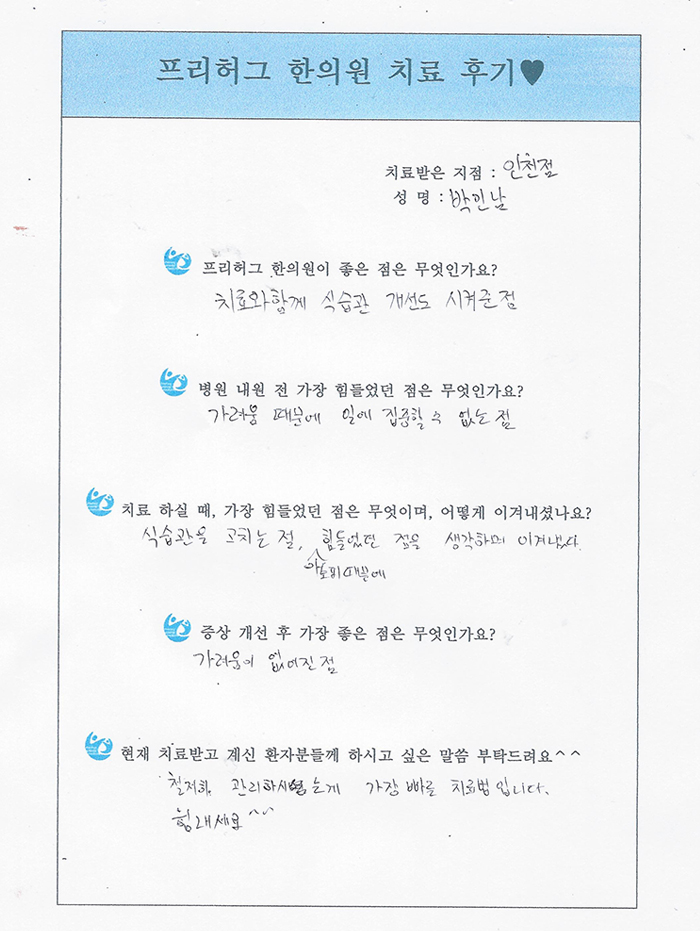 프리허그 한의원 치료 후기♥
치료받은 지점 : 인천점
성 명 : 박인남
프리허그 한의원이 좋은 점은 무엇인가요?
치료와함께 식습관 개선도 시켜준점
병원 내원 전 가장 힘들었던 점은 무엇인가요?
가려움 때문에 일에 집중할 수 없는 점
치료 하실 때, 가장 힘들었던 점은 무엇이며, 어떻게 이겨내셨나요?
식습관을 고치는 점, 힘들었던 점을 생각하며 이겨냈다.
아토피때문에
증상 개선 후 가장 좋은 점은 무엇인가요?
가려움이 없어진점
현재 치료받고 계신 환자분들께 하시고 싶은 말씀 부탁드려요^^
철저히 관리하시는게 가장 빠른 치료법입니다.
힘내세요^^